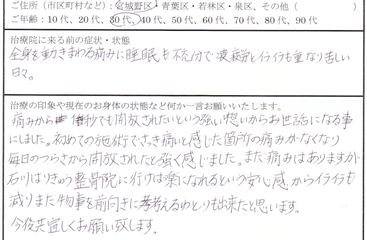 ご住所（市区町村など）：宮城野区・青葉区・若林区・泉区、その他（　　　　）
ご年齢：10代、20代、30代、40代、50代、60代、70代、80代、90代
治療院に来る前の症状・状態
全身を動きまわる痛みに睡眠も不充分で疲労とイライラも重なり苦しい
日々。
治療の印象や現在のお身体の状態など何か一言お願いいたします。
痛みから1秒でも開放されたいという強い想いからお世話になる事
にしました。初めての施術でさっき痛いと感じた箇所の痛みがなくなり
毎日のつらさから開放されたと強く感じました。まだ痛みはありますが
石川はりきゅう整骨院に行けば楽になれるという安心感からイライラも
減りまた物事を前向きに考えるゆとりも出来たと思います。
今後共宜しくお願い致します。